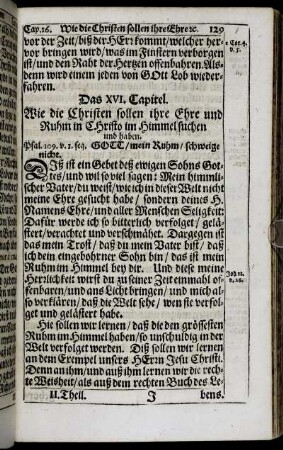 Cap.16. Wie die Christen sollen ihre Ehre ꝛc. 129
vor der Zeit/ biß der HErr kommt/ welcher her-
vor bringen wird/ was im Finstern verborgen
ist/ und den Raht der Hertzen offenbahren. Als-
denn wird einem jeden von GOtt Lob wieder-
fahren.
1 Cor. 4.
v. 5.
Das XVI. Capitel.
Wie die Christen sollen ihre Ehre und
Ruhm in CHristo im Himmel suchen
und haben.
Psal. 109. v. 1. seq. GOTT/ mein Ruhm/ schweige
nicht.
DIß ist ein Gebet deß ewigen Sohns Got-
tes/ und wil so viel sagen: Mein himmli-
scher Vater/ du weist/ wie ich in dieser Welt nicht
meine Ehre gesucht habe/ sondern deines H.
Namens Ehre/ und aller Menschen Seligkeit:
Dafür werde ich so bitterlich verfolget/ gelä-
stert/ verachtet und verschmähet. Dargegen ist
das mein Trost/ daß du mein Vater bist/ daß
ich dein eingebohrner Sohn bin/ das ist mein
Ruhm im Himmel bey dir. Und diese meine
Herrlichkeit wirst du zu seiner Zeit einmahl of-
fenbaren/ und ans Licht bringen/ und mich al-
so verklären/ daß die Welt sehe/ wen sie verfol-
get und gelästert habe.
Joh. 12.
v. 28.
Hie sollen wir lernen/ daß die den grössesten
Ruhm im Himmel haben/ so unschuldig in der
Welt verfolget werden. Diß sollen wir lernen
an dem Exempel unsers HErrn Jesu Christi.
Denn an ihm/ und auß ihm lernen wir die rech-
te Weisheit/ als auß dem rechten Buch des Le-
II. Theil. J bens.